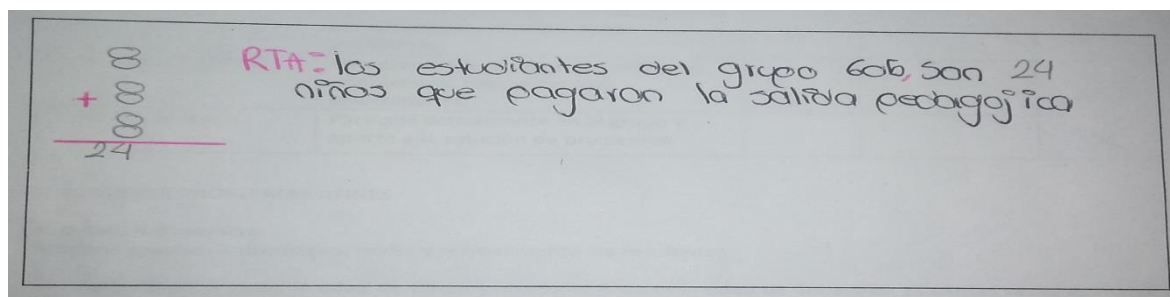 8
+ 8
8
24
RTA= los estudiantes del grupo 606, son 24
niños que pagaron la salida pedagojica